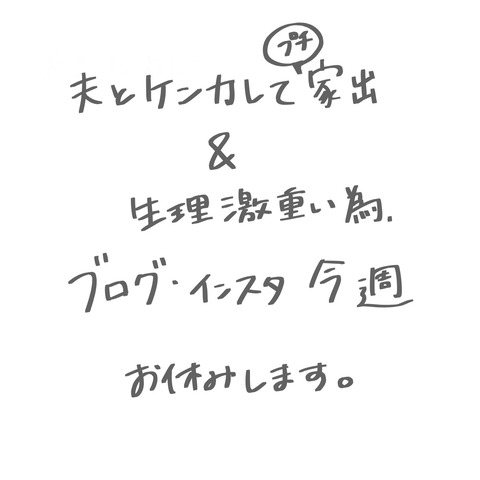 夫とケンカしてプチ家出
&
生理激重い為、
ブログ・インスタ 今週
お休みします。